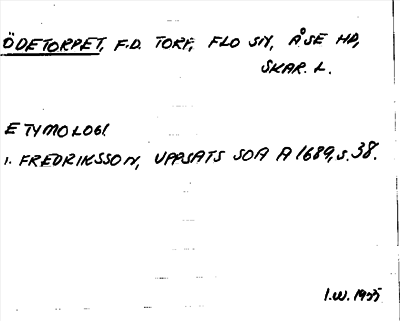 ÖDETORPET, F.D. TORP, FLO SN, ÅSE HD,
SKAR. L.
ETYMOLOGI
1. FREDRIKSSON, UPPSATS SOA A 1689, s. 38.
I.W. 1955